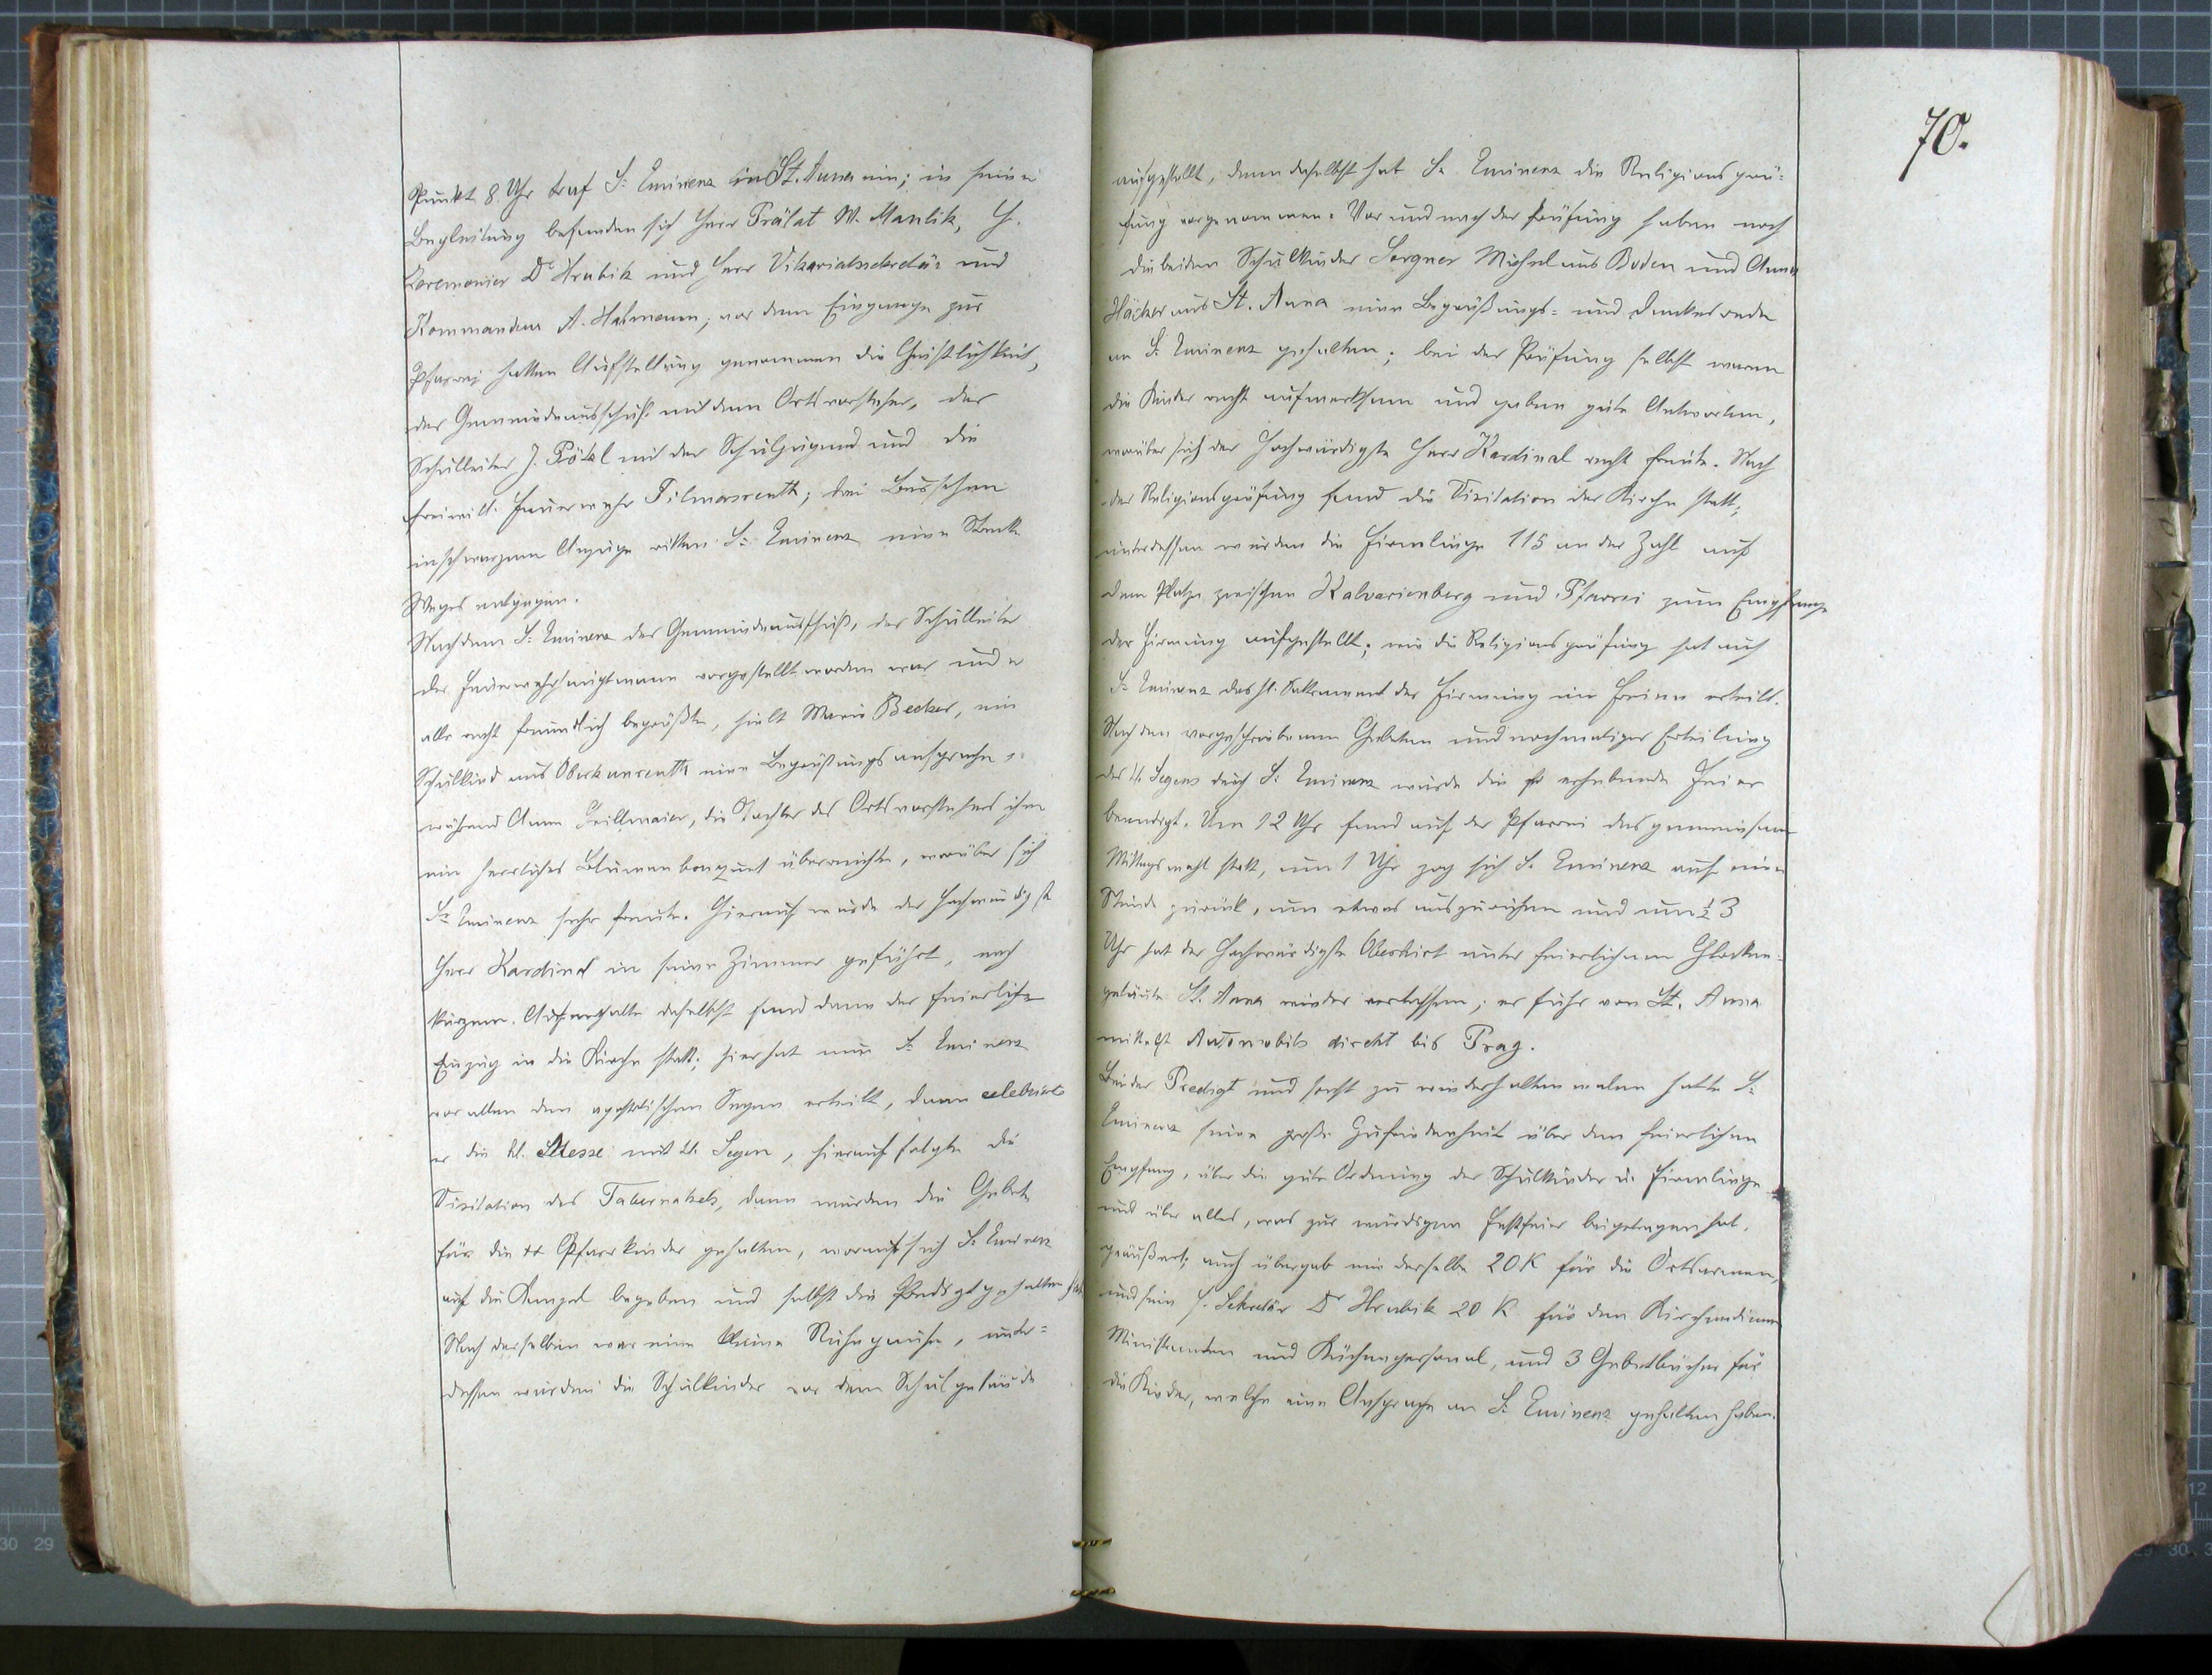 70.
Punkt 8 Uhr traf S: Eminenz in St. Anna ein; in seiner
Begleitung befanden sich Herr Prälat W. Mavlik, H.
Ceremonier Dr Hrubik und Herr Vikariatssekretär und
Kommandeur A. Hahmann; vor dem Eingange zur
Pfarrei hatten Aufstellung genommen die Geistlichkeit,
der Gemeindeausschuß mit dem Ortsvorsteher, der
Schulleiter J. Pötzl mit der Schuljugend und die
freiwill. Feuerwehr Pilmersreuth; drei Burschen
in schwarzem Anzuge ritten S: Eminenz eine Strecke
Weges entgegen.
Nachdem S: Eminenz der Gemeindeausschuß, der Schulleiter
der Feuerwehrhauptmann vorgestellt worden war und er
alle recht freundlich begrüßte, hielt Marie Becker, ein
Schulkind aus Oberkunreuth eine Begrüßungsansprache,
während Anna Grillmaier, die Tochter des Ortsvorstehers ihm
ein herrliches Blumenbouquet überreichte, worüber sich
Sr Eminenz sehr freute. Hierauf wurde der Hochwürdigste
Herr Kardinal in seine Zimmer geführt, nach
kurzem Aufenthalte daselbst fand dann der feierliche
Einzug in die Kirche statt; hier hat nun S: Eminenz
vor allem den apostolischen Segen erteilt, dann celebrirte
er die hl. Messe mit hl. Segen, hierauf folgte die
Visitation des Tabernakels, dann wurden die Gebete
für die ++ Pfarrkinder gehalten, worauf sich S: Eminenz
auf die Kanzel begeben und selbst die Predigt gehalten hat.
Nach derselben war eine kleine Ruhepause, unter=
dessen wurden die Schulkinder vor dem Schulgebäude
aufgestellt, denn daselbst hat S: Eminenz die Religionsprü=
fung vorgenommen. Vor und nach der Prüfung haben noch
die beiden Schulkinder Sorgner Michel aus Boden und Anna
Häcker aus St. Anna eine Begrüßungs= und Dankesrede
an S: Eminenz gehalten; bei der Prüfung selbst waren
die Kinder recht aufmerksam und gaben gute Antworten,
worüber sich der Hochwürdigste Herr Kardinal recht freute. Nach
der Religionsprüfung fand die Visitation der Kirche statt;
unterdessen wurden die Firmlinge 115 an der Zahl auf
dem Platze zwischen Kalvarienberg und Pfarrei zum Empfange
der Firmung aufgestellt; wie die Religionsprüfung hat auch
S: Eminenz das hl. Sakrament der Firmung im Freien erteilt.
Nach den vorgeschriebenen Gebeten und nochmaliger Erteilung
des hl. Segens durch S: Eminenz wurde die so erhebende Feier
beendigt. Um 12 Uhr fand auf der Pfarrei das gemeinsame
Mittagsmahl statt, um 1 Uhr zog sich S. Eminenz auf eine
Stunde zurück, um etwas auszuruhen und um ½ 3
Uhr hat der Hochwürdigste Oberhirt unter feierlichem Glocken=
geläute St. Anna wieder verlassen; er fuhr von St. Anna
mittelst Automobils direkt bis Prag.
Bei der Predigt und sonst zu wiederholtenmalen hatte S:
Eminenz seine große Zufriedenheit über den feierlichen
Empfang, über die gute Ordnung der Schulkinder u. Firmlinge
und über alles, was zur würdigen Festfeier beigetragen hat,
geäußert; auch übergab mir derselbe 20 K für die Ortsarmen,
und sein H. Sekretär Dr Hrubik 20 K für den Kirchendiener
Ministranten und Küchenpersonal, und 3 Gebetbücher für
die Kinder, welche eine Ansprache an S: Eminenz gehalten haben.